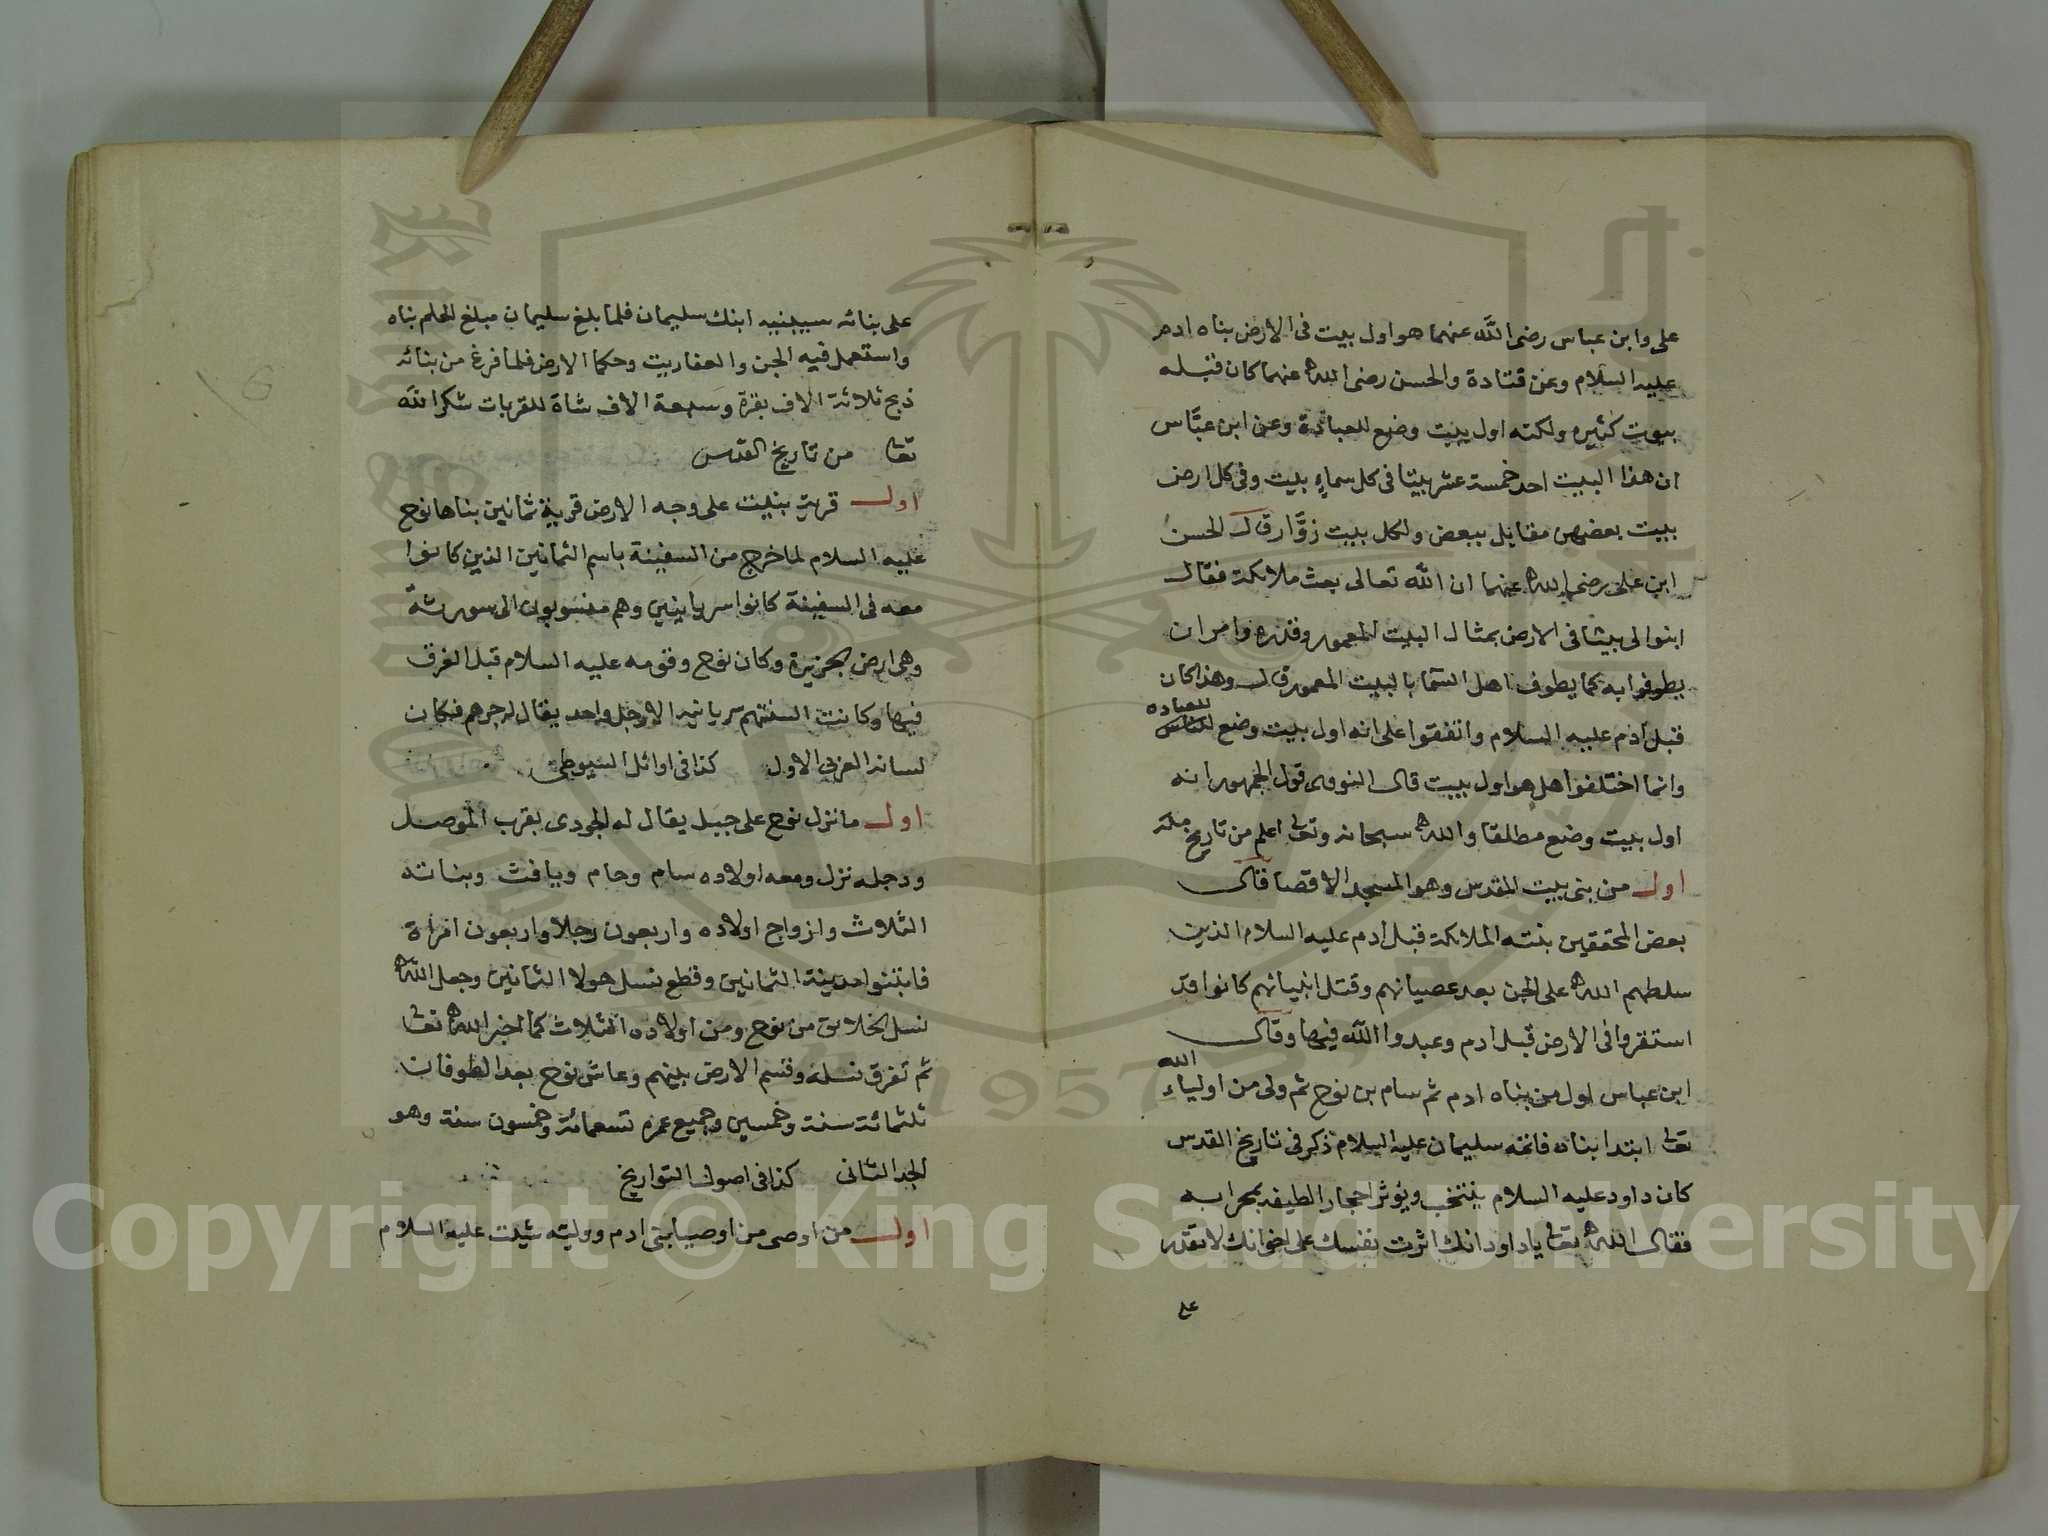 على وابن عباس رضى الله عنهما هو اول بيت فى الارض بناه ادم
عليه السلام وعن قتادة والحسن رضى الله عنهما كان قبله
بيوت كثيره ولكنه اول بيت وضع للعبادة وعن ابن عباس
ان هذا البيت احد خمسة عشر بيتا فى كل سماء بيت وفى كل ارض
بيت بعضهن مقابل ببعض ولكل بيت زوار قال الحسن
ابن على رضى الله عنهما ان الله تعالى بعث ملائكة فقال
ابنوا لى بيتا فى الارض بمثال البيت المعمور وقدره وامر ان
يطوفوا به كما يطوف اهل السما بالبيت المعمور قال وهذا كان
قبل ادم عليه السلام واتفقوا على انه اول بيت وضع للناس للعباده
وانما اختلفوا هل هو اول بيت قال النووى قول الجمهور انه
اول بيت وضع مطلقا والله سبحانه وتعالى اعلم من تاريخ مكة
اول من بنى بيت المقدس وهو المسجد الاقصا قال
بعض المحققين بنته الملائكة قبل ادم عليه السلام الذين
سلطهم الله على الجن بعد عصيانهم وقتل انبيائهم كانوا قد
استقروا فى الارض قبل ادم وعبدوا الله فيها وقال
ابن عباس اول من بناه ادم ثم سام بن نوح ثم ولى من اولياء الله
تعالى ابتدا بناه فاتمه سليمان عليه السلام ذكر فى تاريخ القدس
كان داود عليه السلام ينتخب ويؤثر احجار الطيفه بمحرابه
فقال الله تعالى ياداود انك اثرت نفسك على اخوانك لا تقدر
على
على بنائه سيبنيه ابنك سليمان فلما بلغ سليمان مبلغ الحلم بناه
واستعمل فيه الجن والعفاريت وحكما الارض فلما فرغ من بنائه
ذبح ثلاثة الاف بقرة وسبعة الاف شاة للقربات شكرا لله
تعا من تاريخ القدس
اول قرية بنيت على وجه الارض قرية ثمانين بناها نوح
عليه السلام لما خرج من السفينة باسم الثمانين الذين كانوا
معه فى السفينة كانوا سريانيين وهم منسوبون الى سورشة
وهى ارض الجزيرة وكان نوح وقومه عليه السلام قبل الغرق
فيها وكانت السنتهم سريانيه الا رجل واحد يقال له جرهم فكان
لسانه العربى الاول كذا فى اوائل السيوطى
اول ما نزل نوح على جبل يقال له الجودى بقرب الموصل
ودجله نزل ومعه اولاده سام وحام ويافث وبناته
الثلاث وازواج اولاده واربعون رجلا واربعون امراة
فابتنوا مدينة الثمانين وقطع نسل هولا الثمانين وجعل الله
نسل الخلائق من نوح ومن اولاده الثلاث كما اخبر الله تعا
ثم تفرق نسله وقسم الارض بينهم وعاش نوح بعد الطوفان
ثلثمائة سنة وخمسين وجميع عمره تسعمائة وخمسون سنة وهو
الجد الثانى كذا فى اصول التواريخ
اول من اوصى من اوصيا بنى ادم ووليته شيث عليه السلام
Copyright © King Saud University
1957